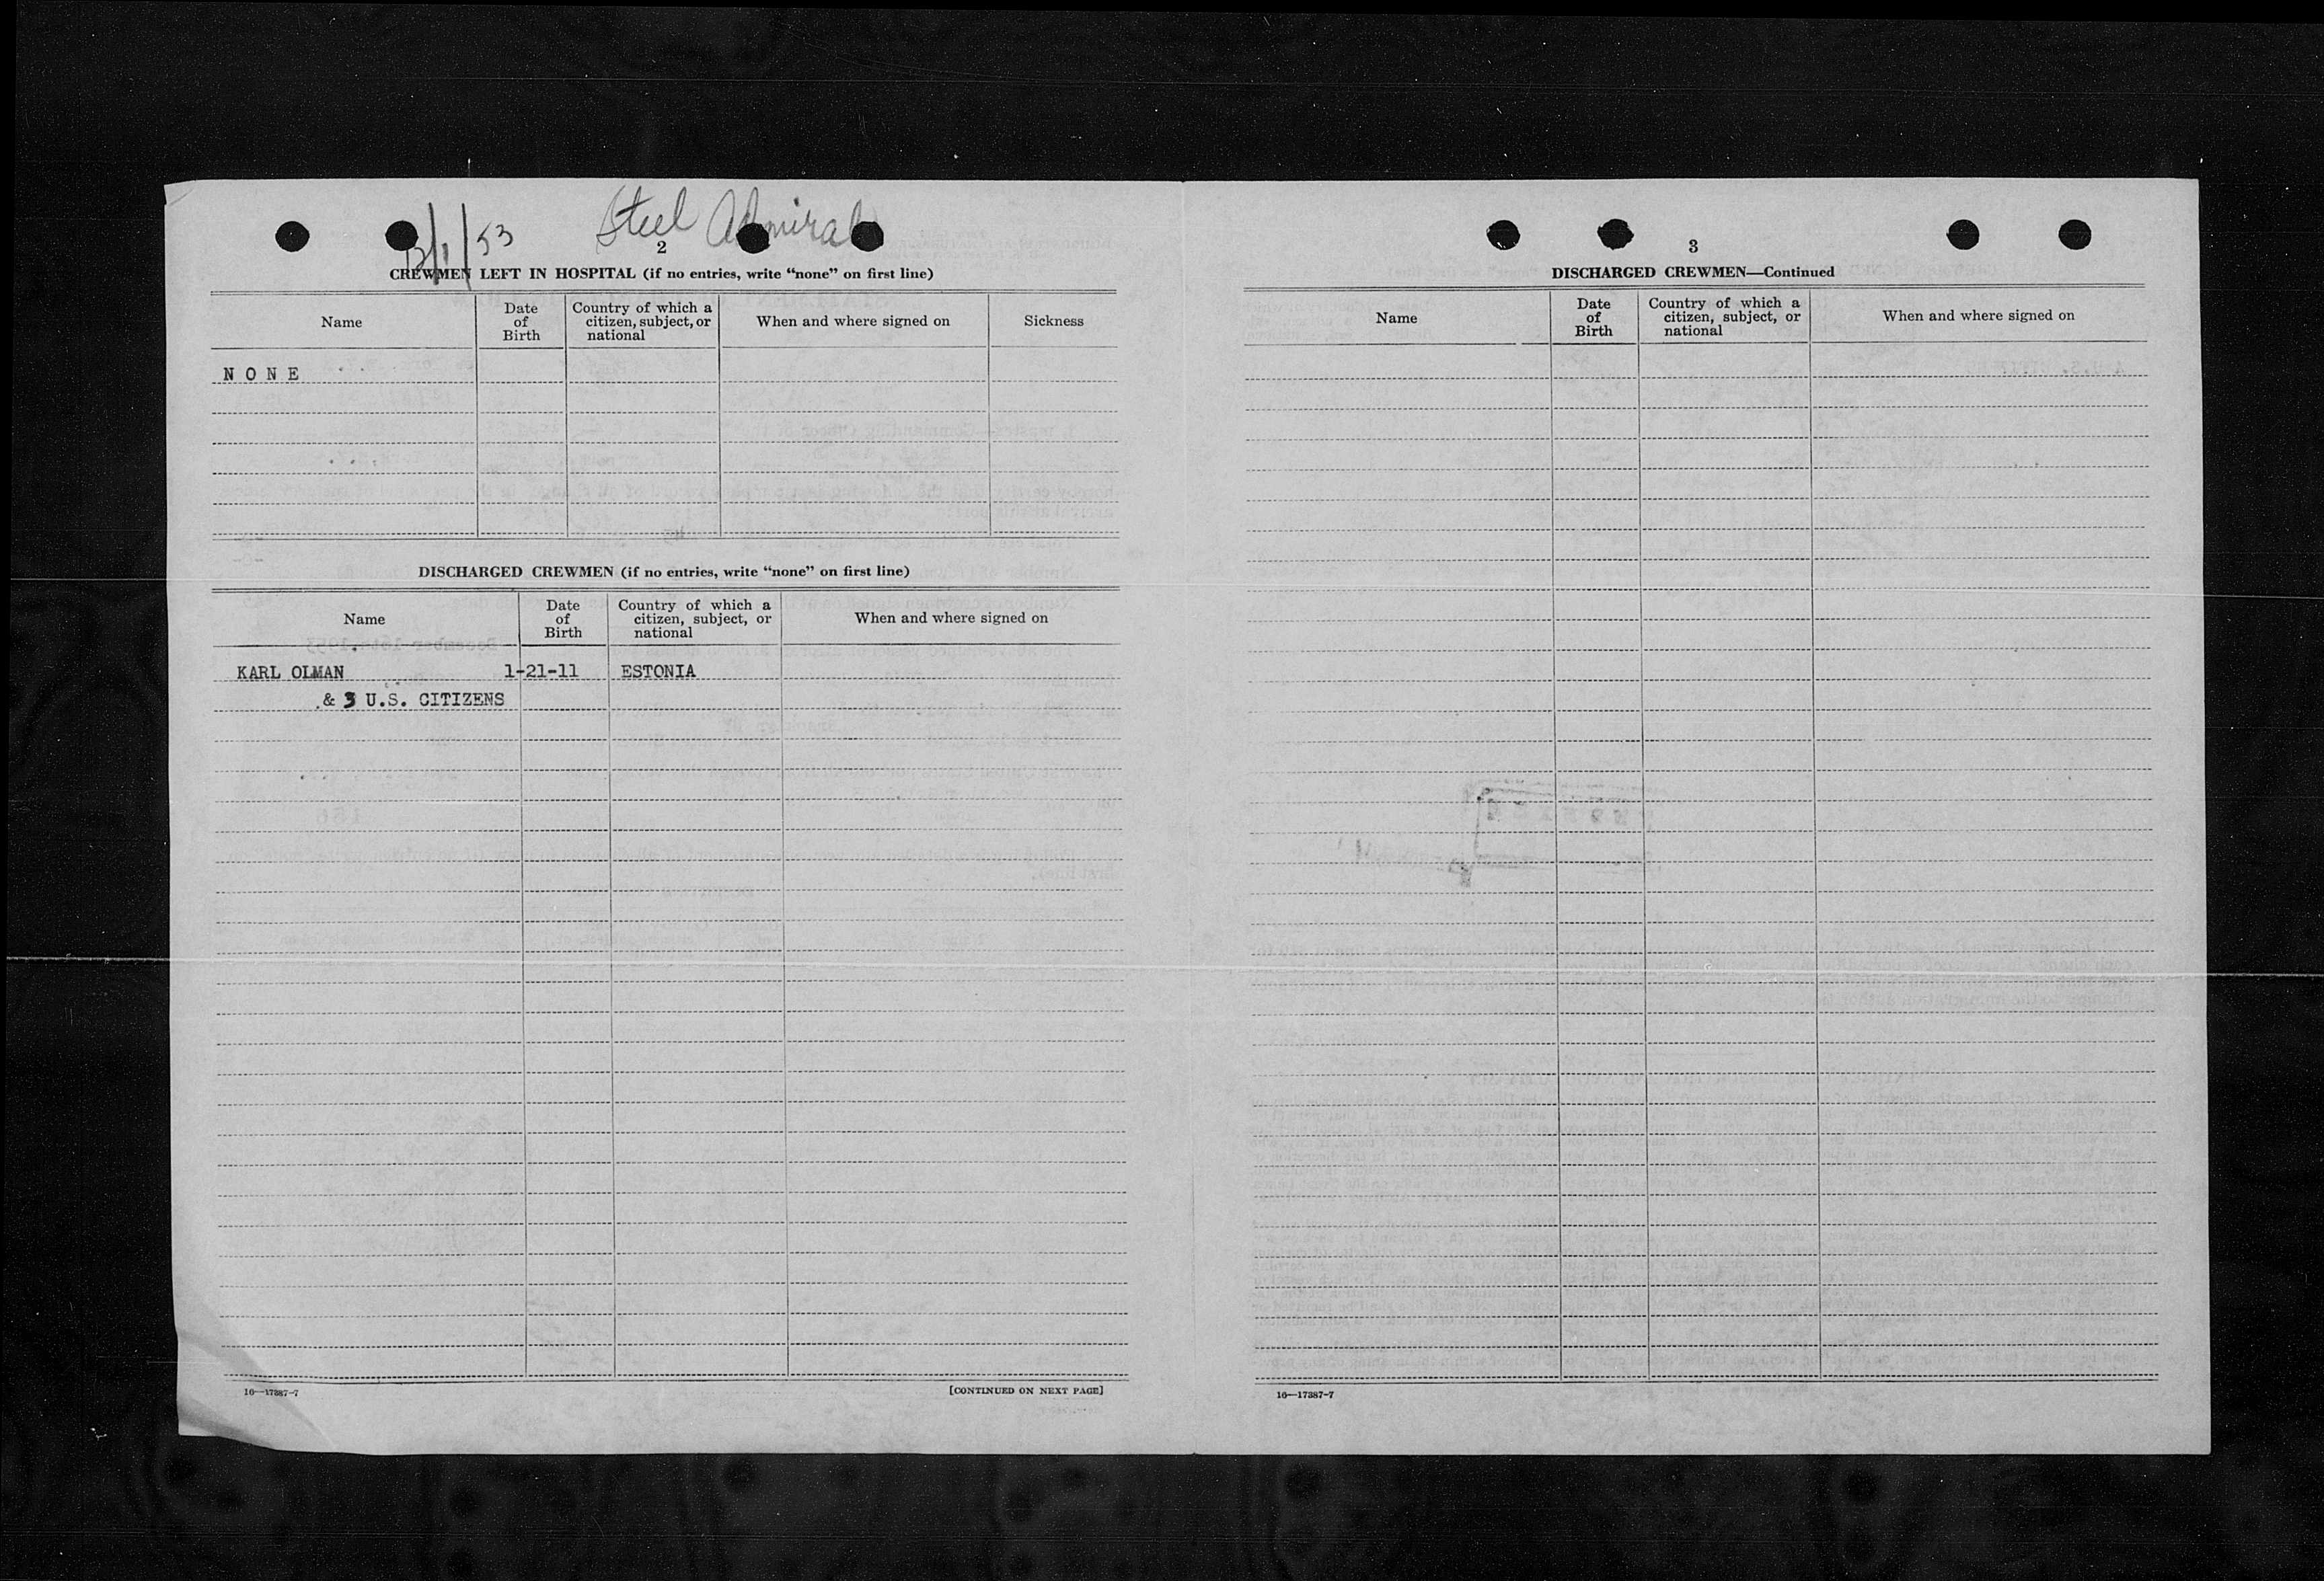 12/1/53 Steel Admiral
2
CREWMEN LEFT IN HOSPITAL (if no entries, write “none” on first line)
Name Date of Birth Country of which a citizen, subject, or national When and where signed on Sickness
NONE
DISCHARGED CREWMEN (if no entries, write “none” on first line)
Name Date of Birth Country of which a citizen, subject, or national When and where signed on
KARL OLMAN 1-21-11 ESTONIA
& 3 U.S. CITIZENS
16—17387-7 [CONTINUED ON NEXT PAGE]
3
DISCHARGED CREWMEN—Continued
Name Date of Birth Country of which a citizen, subject, or national When and where signed on
16—17387-7